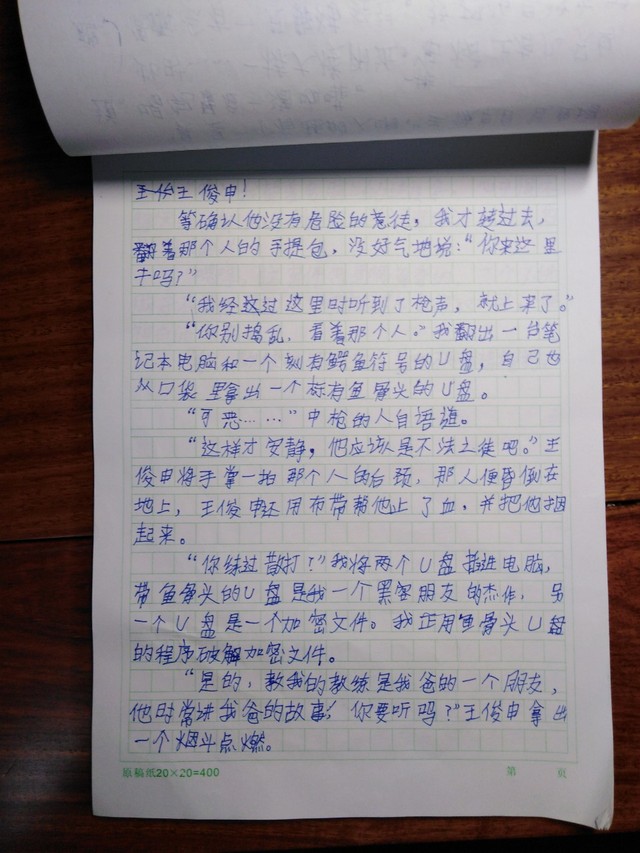 王俊申！
等确认他没有危险的意徒，我才越过去，
翻着那个人的手提包，没好气地说：“你来这里
干吗？”
“我经过这里时听到了枪声，就上来了。”
“你别捣乱，看着那个人。”我翻出一台笔
记本电脑和一个刻有鳄鱼符号的U盘，自己也
从口袋里拿出一个标有鱼骨头的U盘。
“可恶……”中枪的人自语道。
“这样才安静，他应该是不法之徒吧。”王
俊申将手掌一拍那个人的后颈，那人便昏倒在
地上，王俊申还用布带帮他止了血，并把他捆
起来。
“你练过散打？”我将两个U盘插进电脑，
带鱼骨头的U盘是我一个黑客朋友的杰作，另
一个U盘是一个加密文件。我正用鱼骨头U盘
的程序破解加密文件。
“是的，教我的教练是我爸的一个朋友，
他时常讲我爸的故事，你要听吗？”王俊申拿出
一个烟斗点燃。
原稿纸20×20=400
第 页